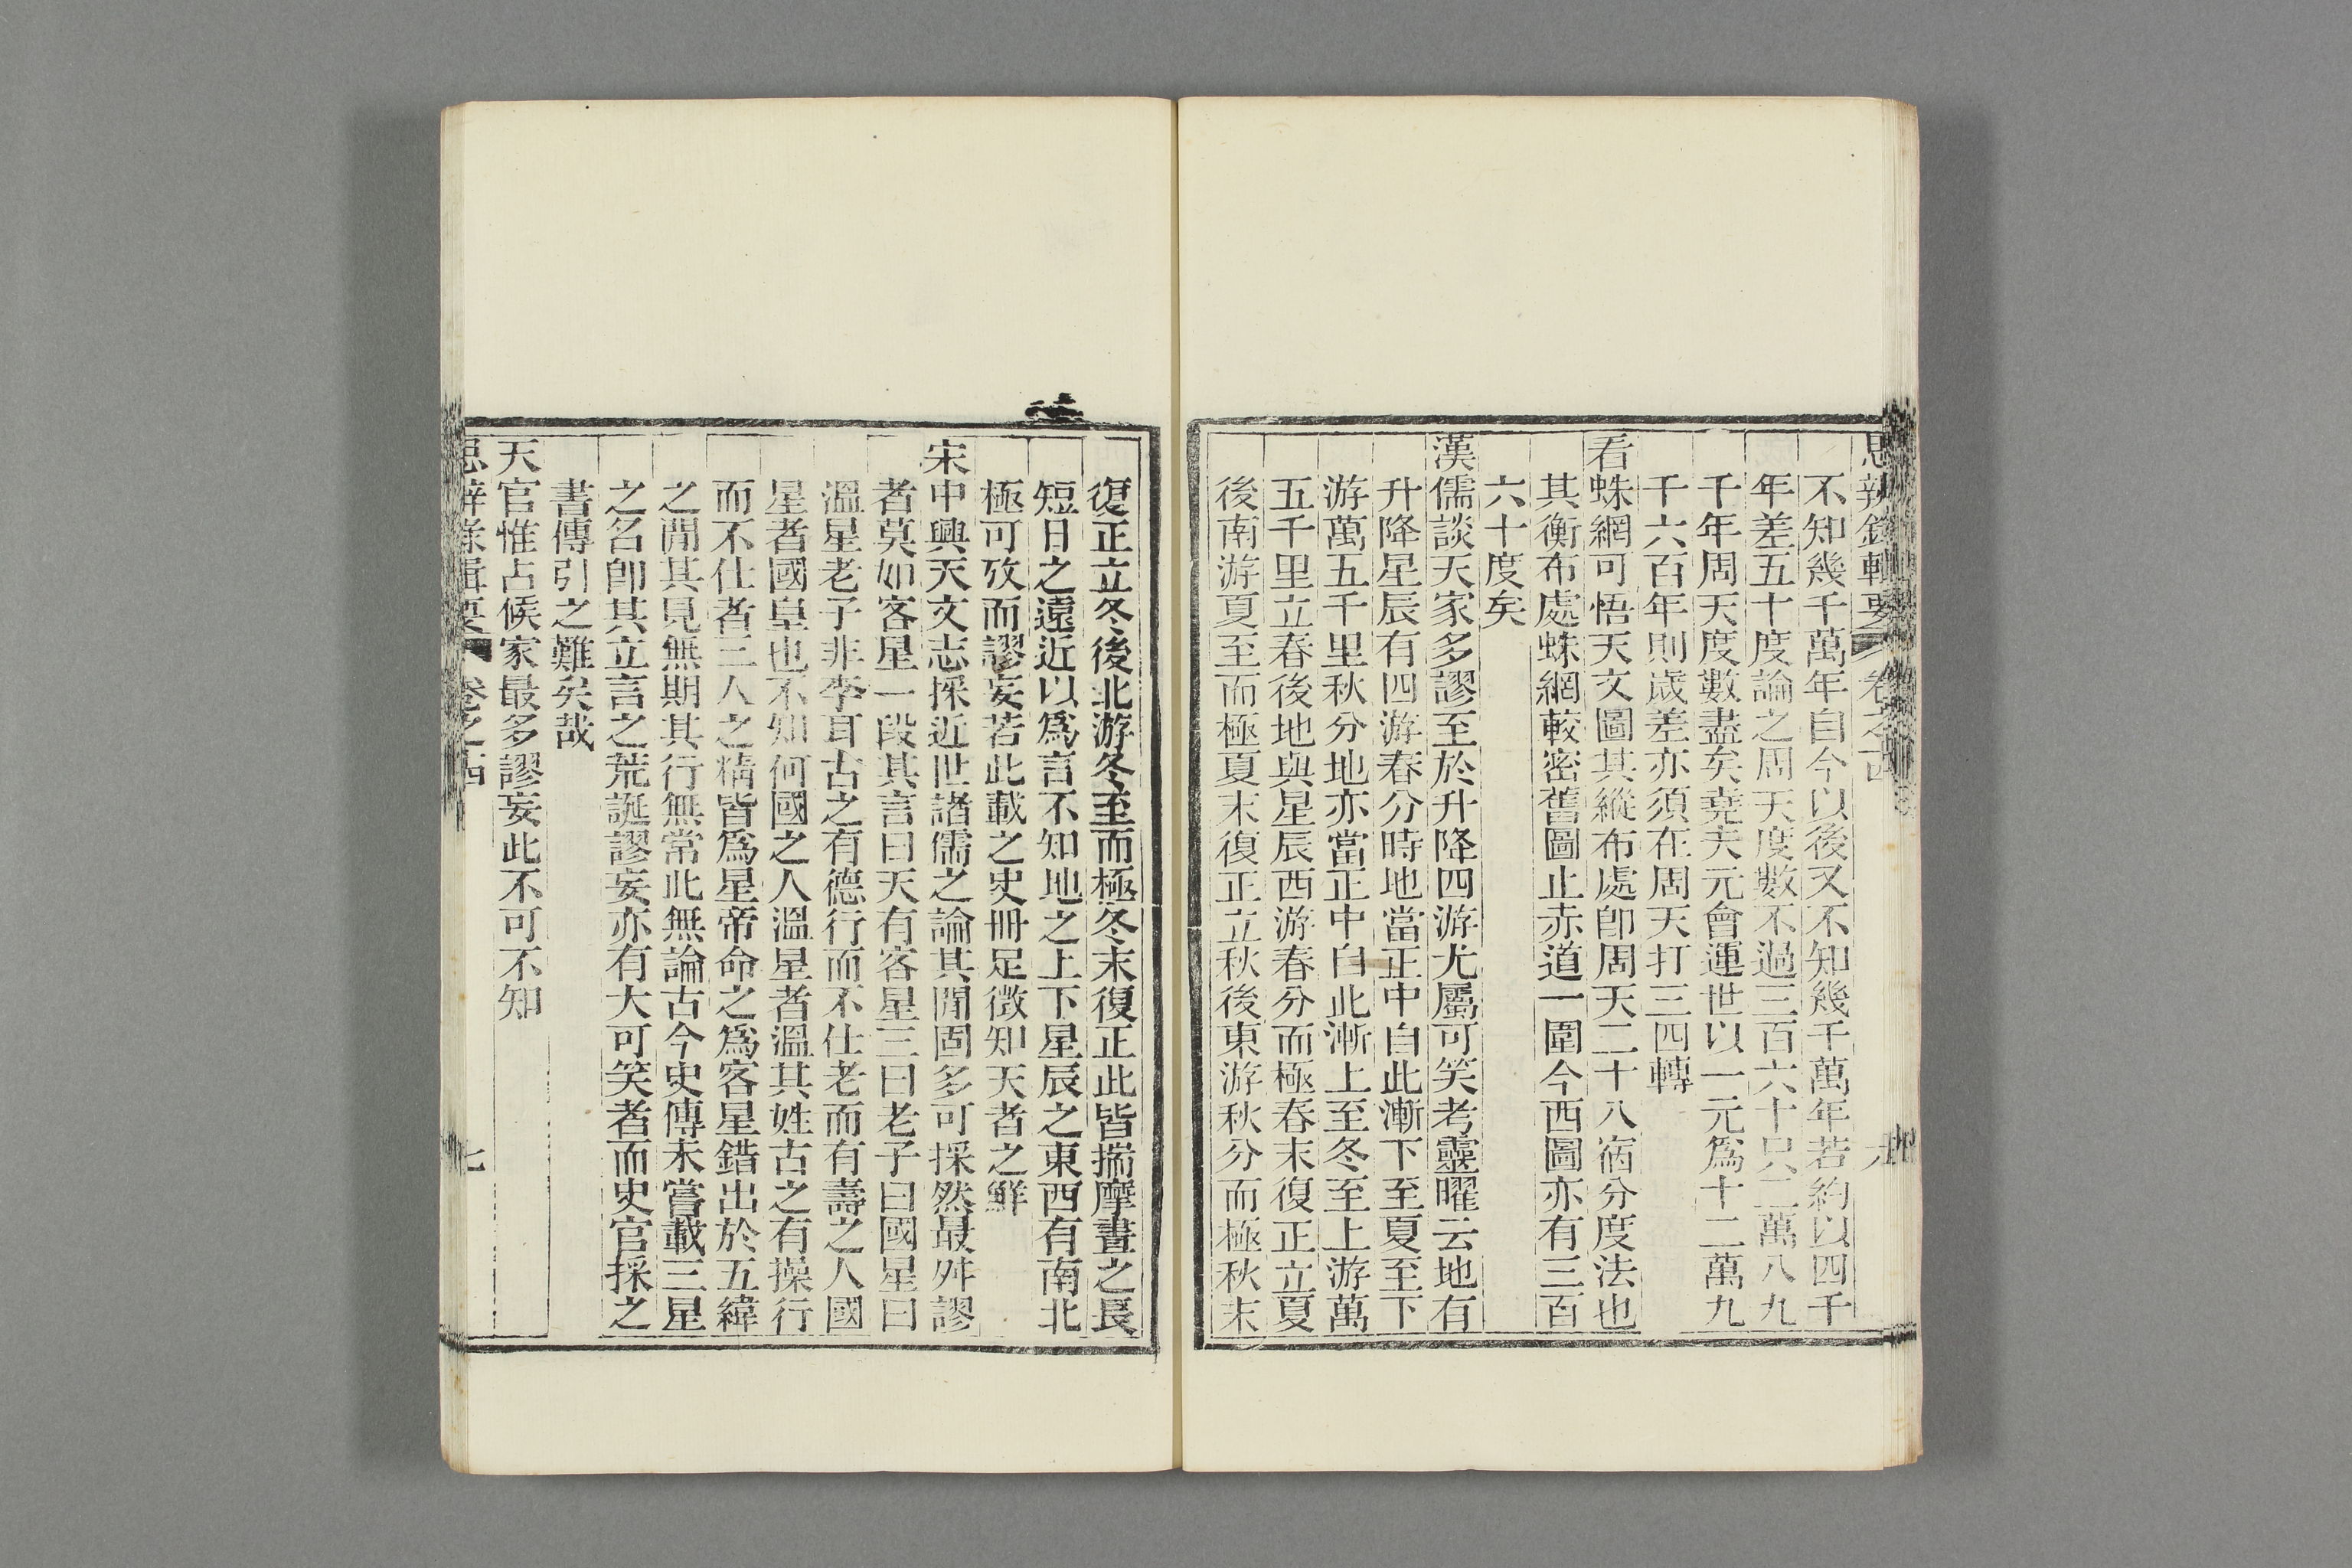 思辨錄輯要 卷之十四 六
不知幾千萬年自今以後又不知幾千萬年若約以四千
年差五十度論之周天度數不過三百六十只二萬八九
千年周天度數盡矣堯夫元會運世以一元爲十二萬九
千六百年則歲差亦須在周天打三四轉
看蛛網可悟天文圖其縱布處卽周天二十八宿分度法也
其衡布處蛛網較密舊圖止赤道一圍今西圖亦有三百
六十度矣
漢儒談天家多謬至於升降四游尤屬可笑考靈曜云地有
升降星辰有四游春分時地當正中自此漸下至夏至下
游萬五千里秋分地亦當正中自此漸上至冬至上游萬
五千里立春後地與星辰西游春分而極春末復正立夏
後南游夏至而極夏末復正立秋後東游秋分而極秋末
復正立冬後北游冬至而極冬末復正此皆揣摩晝之長
短日之遠近以爲言不知地之上下星辰之東西有南北
極可攷而謬妄若此載之史冊足徵知天者之鮮
宋中興天文志採近世諸儒之論其閒固多可採然最舛謬
者莫如客星一段其言曰天有客星三曰老子曰國星曰
溫星老子非李耳古之有德行而不仕老而有壽之人國
星者國皇也不知何國之人溫星者溫其姓古之有操行
而不仕者三人之精皆爲星帝命之爲客星錯出於五緯
之閒其見無期其行無常此無論古今史傳未嘗載三星
之名卽其立言之荒誕謬妄亦有大可笑者而史官採之
書傳引之難矣哉
天官惟占候家最多謬妄此不可不知
思辨錄輯要 卷之十四 七